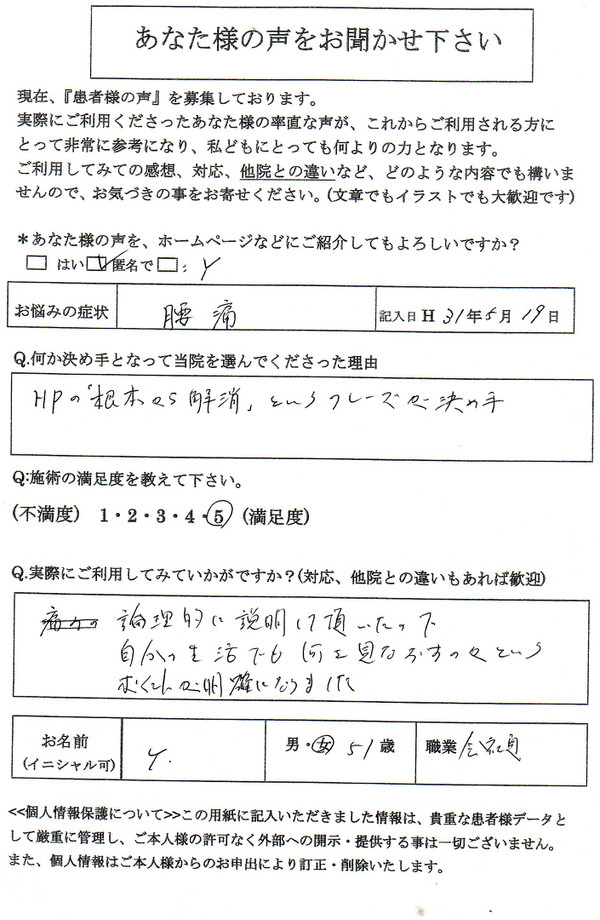 あなた様の声をお聞かせ下さい
現在、『患者様の声』を募集しております。
実際にご利用くださったあなた様の率直な声が、これからご利用される方に
とって非常に参考になり、私どもにとっても何よりの力となります。
ご利用してみての感想、対応、他院との違いなど、どのような内容でも構いま
せんので、お気づきの事をお寄せください。(文章でもイラストでも大歓迎です)
*あなた様の声を、ホームページなどにご紹介してもよろしいですか?
□ はい ☑ 匿名で □: Y
お悩みの症状 腰痛 記入日 H 31年5月19日
Q.何か決め手となって当院を選んでくださった理由
HPの「根本から解消」というフレーズが決め手
Q:施術の満足度を教えて下さい。
(不満度) 1・2・3・4・5 (満足度)
Q.実際にご利用してみていかがですか?(対応、他院との違いもあれば歓迎)
論理的に説明して頂いたので
自分の生活でも何を見なおすのかという
が明確になりました
お名前 (イニシャル可) Y. 男・女 51歳 職業 会社員
<<個人情報保護について>>この用紙に記入いただきました情報は、貴重な患者様データと
して厳重に管理し、ご本人様の許可なく外部への開示・提供する事は一切ございません。
また、個人情報はご本人様からのお申出により訂正・削除いたします。